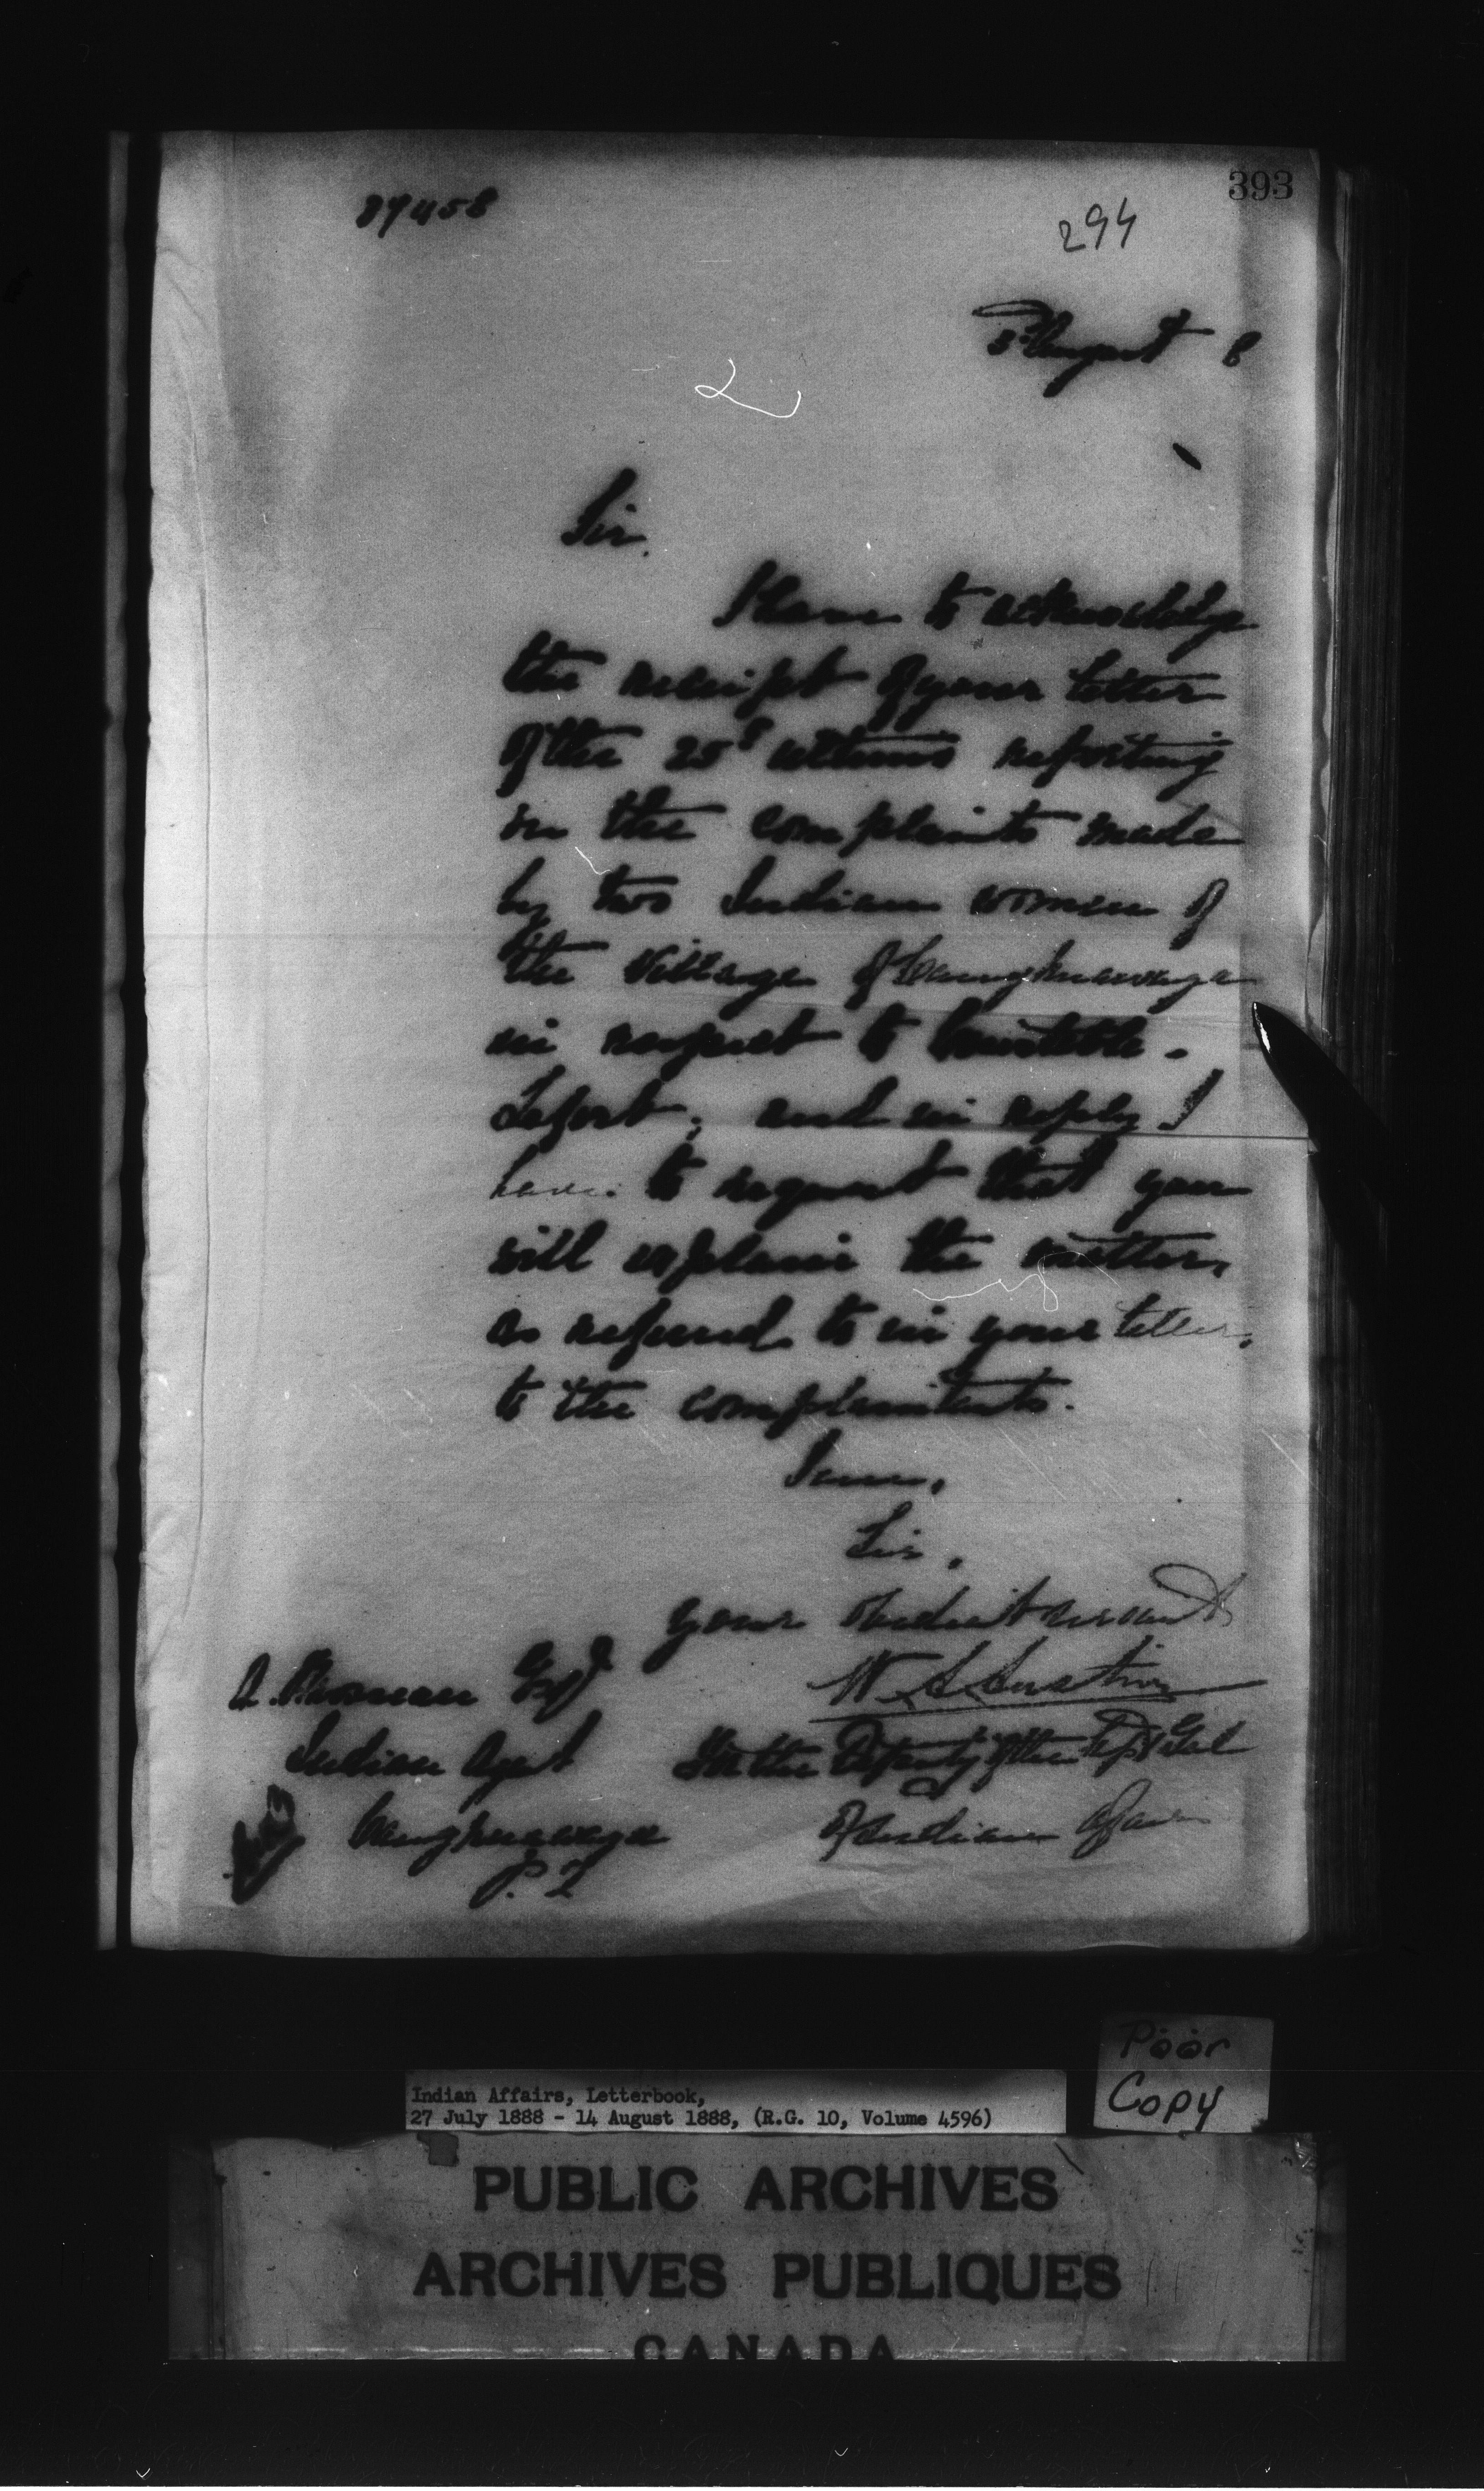 393
294
August 8
Sir.
I have to acknowledge
the receipt of your letter
of the 25th ultimo reporting
on the complaints made
by two Indian women of
the Village of Caughnawaga
in respect to Constable
Lefort; and in reply I
have to request that you
will explain the matter,
as referred to in your letter,
to the complainants.
I am,
Sir,
Your obedient servant
A. Brosseau Esq
W. A. Austin
Indian Agent
For the Deputy of the Supt Genl
Caughnawaga
of Indian Affairs
P. Q
Poor
Copy
Indian Affairs, Letterbook,
27 July 1888 - 14 August 1888, (R.G. 10, Volume 4596)
PUBLIC ARCHIVES
ARCHIVES PUBLIQUES
CANADA